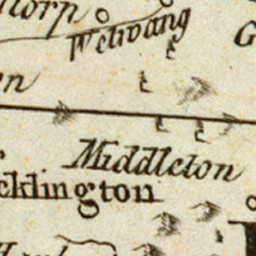 torp
Wetwang
G
en
Middleton
cklington